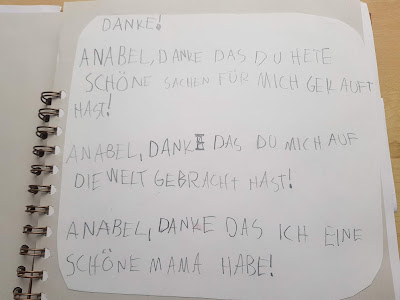 DANKE!
ANABEL, DANKE DAS DU HETE
SCHÖNE SACHEN FÜR MICH GEKAUFT
HAST!
ANABEL, DANKE DAS DU MICH AUF
DIE WELT GEBRACHT HAST!
ANABEL, DANKE DAS ICH EINE
SCHÖNE MAMA HABE!